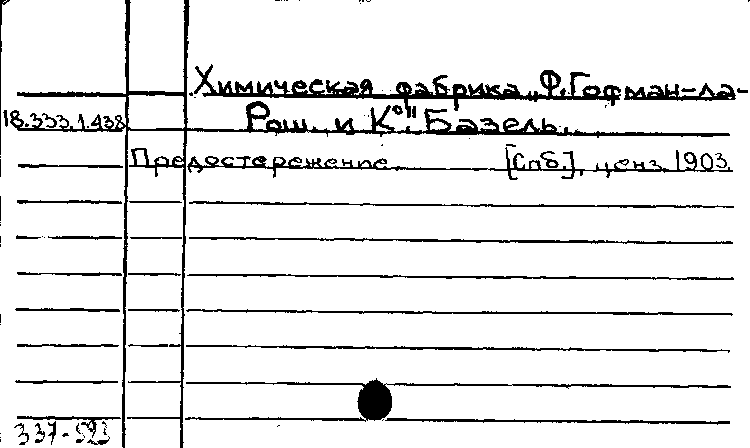 Химическая фабрика „Ф. Гофман-ла-
18.353.1.438 Рош и К°". Базель.
Предостережение. [Спб], ценз. 1903
337-593